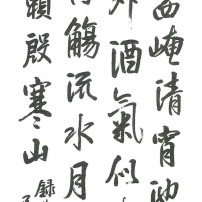 西崦清宵
外酒氣似
觴流水月
殷寒山 錄